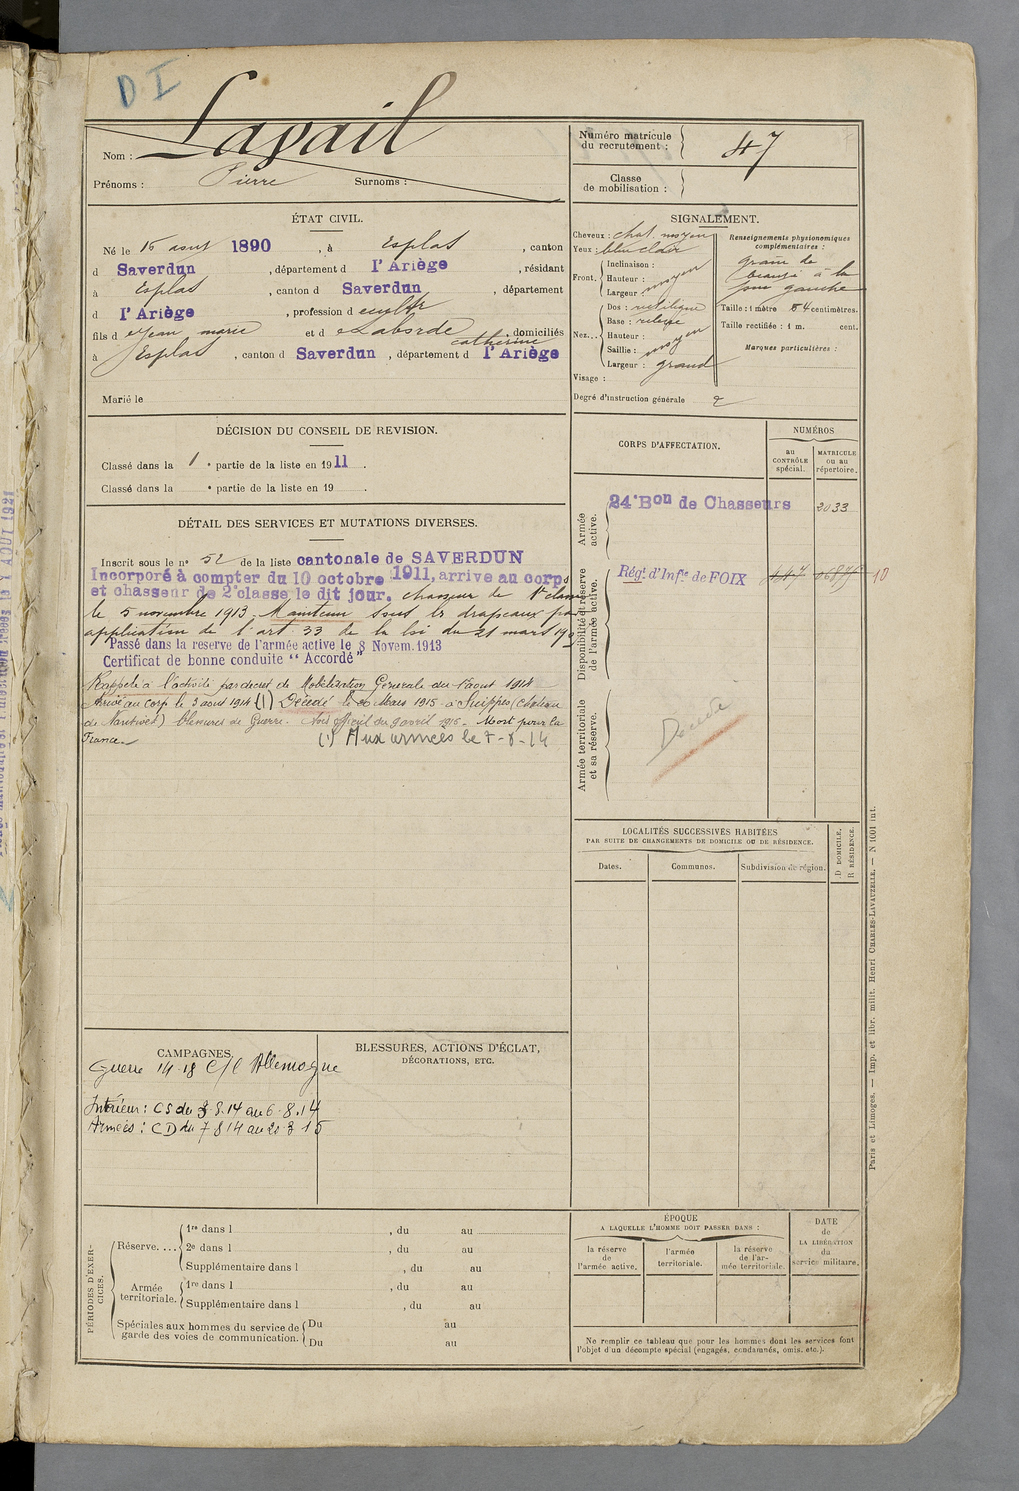 D I
Nom : Lapail
Prénoms : Pierre Surnoms :
Numéro matricule
du recrutement : 47
Classe
de mobilisation :
ÉTAT CIVIL.
Né le 16 aout 1890, à Esplas, canton
d Saverdun, département d l'Ariège, résidant
à Esplas, canton d Saverdun, département
d l'Ariège, profession d cultr
fils d Jean marie et d Labrède catherine, domiciliés
à Esplas, canton d Saverdun, département d l'Ariège
Marié le
SIGNALEMENT.
Cheveux : chat. moyen
Yeux : bleu clair
Front. Inclinaison :
Hauteur : moyen
Largeur
Nez... Dos : rectiligne
Base : relevée
Hauteur :
Saillie : moyen
Largeur : grand
Visage :
Degré d'instruction générale 2
Renseignements physionomiques
complémentaires :
grain de
beauté à la
joue gauche
Taille : 1 mètre 54 centimètres.
Taille rectifiée : 1 m. cent.
Marques particulières :
DÉCISION DU CONSEIL DE REVISION.
Classé dans la 1e partie de la liste en 1911.
Classé dans la e partie de la liste en 19 .
DÉTAIL DES SERVICES ET MUTATIONS DIVERSES.
Inscrit sous le n° 52 de la liste cantonale de SAVERDUN
Incorporé à compter du 10 octobre 1911, arrive au corps
et chasseur de 2e classe le dit jour. chasseur de 1e classe
le 5 novembre 1913. Maintenu sous les drapeaux par
application de l'art. 33 de la loi du 21 mars 190
Passé dans la reserve de l'armée active le 8 Novem. 1913
Certificat de bonne conduite "Accordé"
Rappelé à l'activité par decret de Mobilisation Générale du 1 aout 1914
Arrivé au Corps le 3 aout 1914 (1) Décédé le 20 Mars 1915 à Suippes (Chateau
de Nantivet) blessures de Guerre. Avis officiel du 9 avril 1915. Mort pour la
France.
(1) Aux armées le 7-8-14
CORPS D'AFFECTATION.
NUMÉROS
au
CONTRÔLE
spécial.
MATRICULE
ou au
répertoire.
Armée
active.
24e Bon de Chasseurs 2033
Disponibilité et réserve
de l'armée active.
Régt d'Infie de FOIX 447 10
Armée territoriale
et sa réserve.
Décédé
LOCALITÉS SUCCESSIVES HABITÉES
PAR SUITE DE CHANGEMENTS DE DOMICILE OU DE RÉSIDENCE.
Dates.
Communes.
Subdivision de région.
D DOMICILE.
R RÉSIDENCE.
CAMPAGNES.
Guerre 14-18 C/l Allemagne
Intérieur : CS du 3.8.14 au 6.8.14
Armées : CD du 7 8 14 au 20 3 15
BLESSURES, ACTIONS D'ÉCLAT,
DÉCORATIONS, ETC.
PÉRIODES D'EXER-
CICES.
Réserve.... 1re dans l , du au
2e dans l , du au
Supplémentaire dans l , du au
Armée
territoriale. 1re dans l , du au
Supplémentaire dans l , du au
Spéciales aux hommes du service de
garde des voies de communication. Du au
Du au
ÉPOQUE
A LAQUELLE L'HOMME DOIT PASSER DANS :
la réserve
de
l'armée active.
l'armée
territoriale.
la réserve
de l'ar-
mée territoriale.
DATE
de
LA LIBÉRATION
du
service militaire.
Ne remplir ce tableau que pour les hommes dont les services font
l'objet d'un décompte spécial (engagés, condamnés, omis, etc.).
Paris et Limoges. — Imp. et libr. milit. Henri CHARLES-LAVAUZELLE. — N 1001 int.